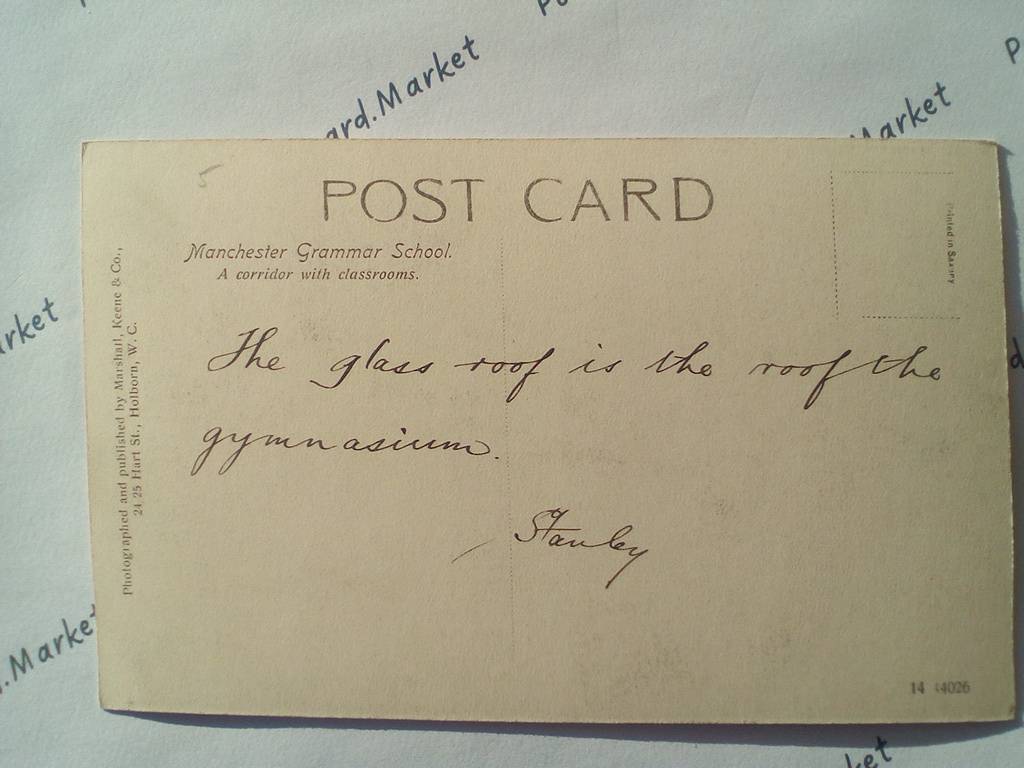 ard.Market
Market
POST CARD
Manchester Grammar School.
A corridor with classrooms.
Printed in Saxony
Photographed and published by Marshall, Keene & Co.,
24 25 Hart St., Holborn, W. C.
The glass roof is the roof the
gymnasium.
Stanley
5
arket
.Market
14 44026
ket